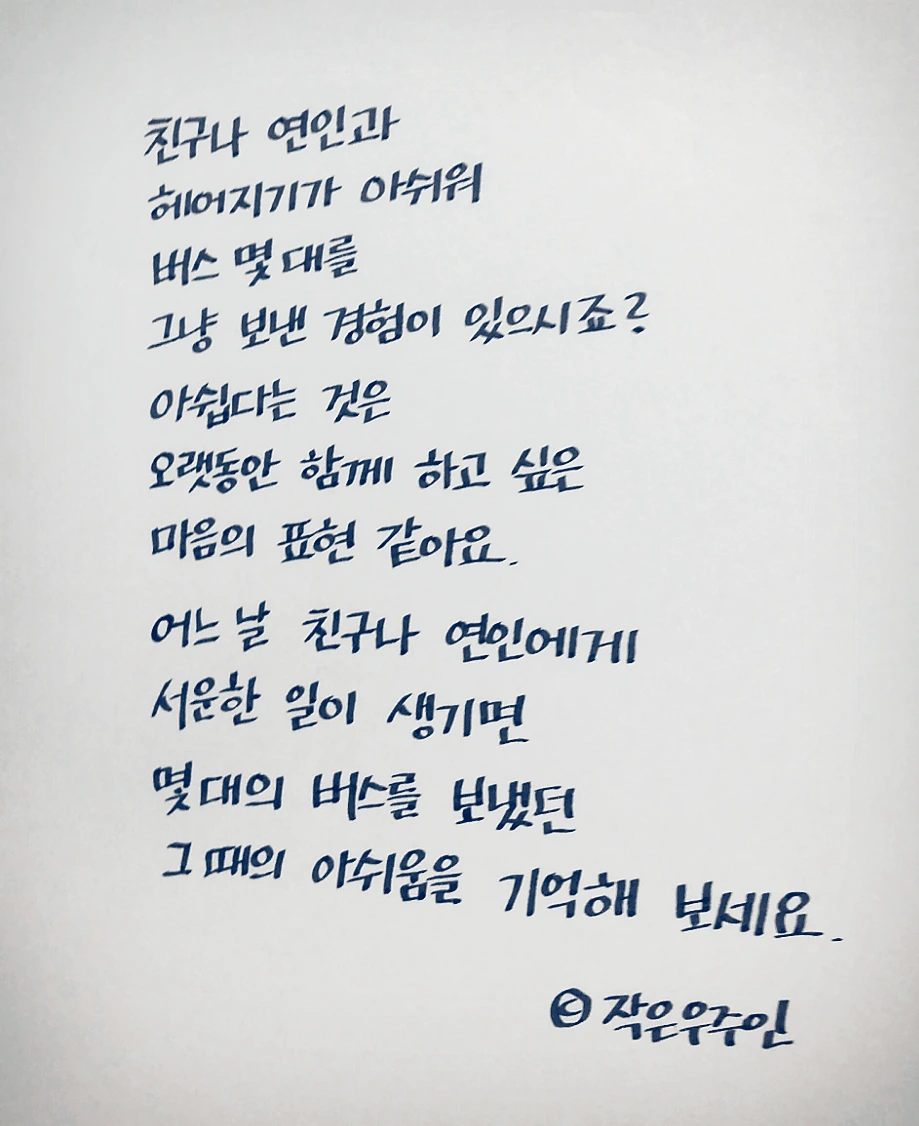 친구나 연인과
헤어지기가 아쉬워
버스 몇 대를
그냥 보낸 경험이 있으시죠?
아쉽다는 것은
오랫동안 함께 하고 싶은
마음의 표현 같아요.
어느 날 친구나 연인에게
서운한 일이 생기면
몇 대의 버스를 보냈던
그 때의 아쉬움을 기억해 보세요.
© 작은우주인